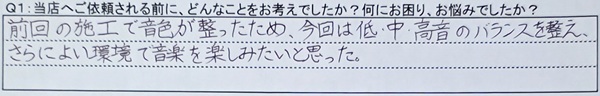 Q1:当店へご依頼される前に、どんなことをお考えでしたか?何にお困り、お悩みでしたか?
前回の施工で音色が整ったため、今回は低・中・高音のバランスを整え、
さらによい環境で音楽を楽しみたいと思った。